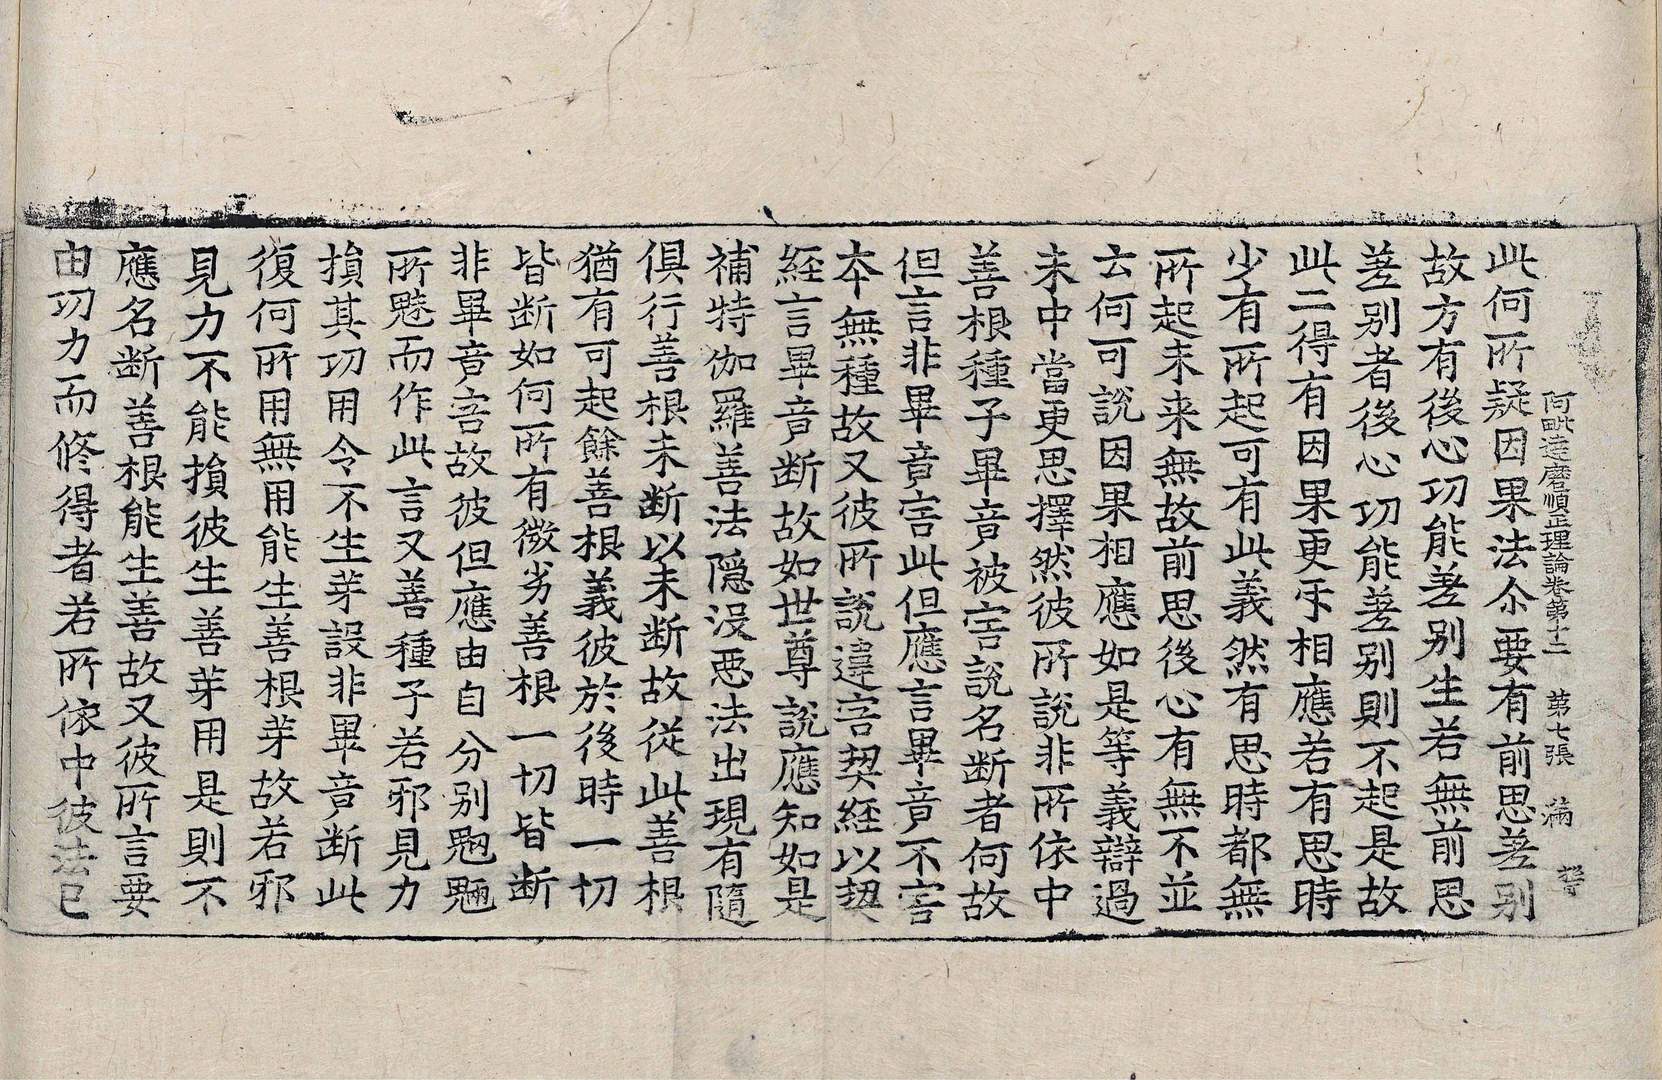 阿毗達磨順正理論卷第十二 第七張 滿
此何所疑因果法尒要有前思差别
故方有後心功能差别生若無前思
差别者後心功能差别則不起是故
此二得有因果更㸦相應若有思時
少有所起可有此義然有思時都無
所起未来無故前思後心有無不並
云何可說因果相應如是等義辯過
未中當更思擇然彼所說非所依中
善根種子畢竟被害說名断者何故
但言非畢竟害此但應言畢竟不害
本無種故又彼所說違害契經以契
經言畢竟断故如世尊說應知如是
補特伽羅善法隱沒惡法出現有隨
俱行善根未断以未断故從此善根
猶有可起餘善根義彼於後時一切
皆断如何所有微劣善根一切皆断
非畢竟害故彼但應由自分别魍魎
所魅而作此言又善種子若邪見力
損其功用令不生芽設非畢竟断此
復何所用無用能生善根芽故若邪
見力不能損彼生善芽用是則不
應名断善根能生善故又彼所言要
由功力而修得者若所依中彼法已